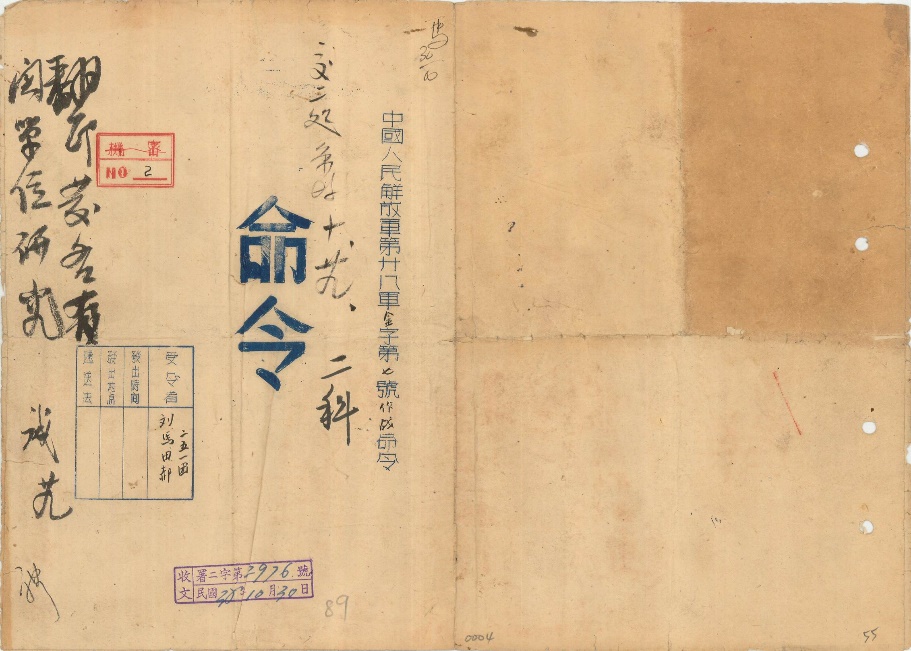 中國人民解放軍第廿八軍金字第七號作战命令
二科
命令
機審
NO 2
翻印發各有
関單位研究
受令者
二五一团
刘馬田郝
發出時间
發出地点
遞送法
收文
署二字第2976號
民國38年10月30日
89
0004
55